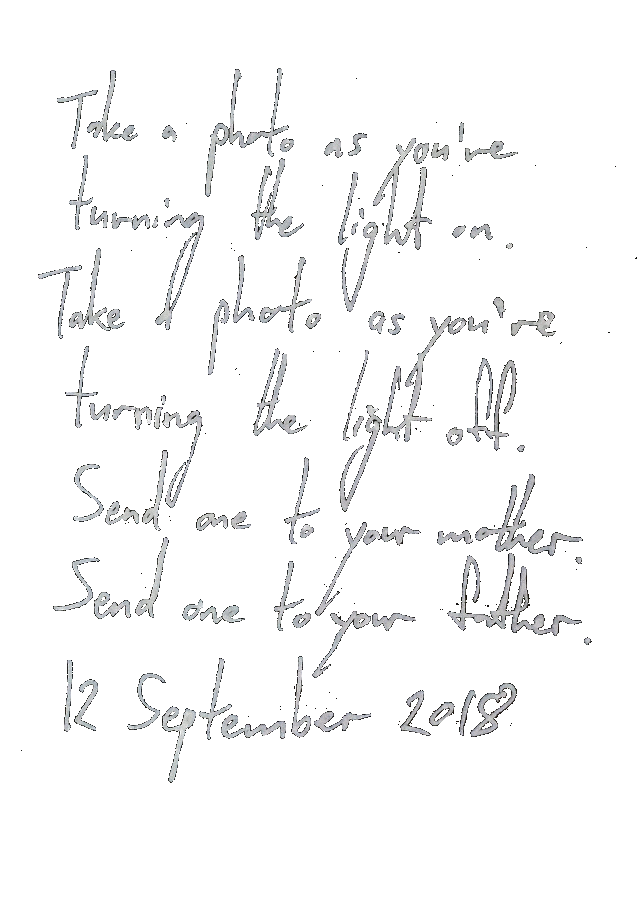 Take a photo as you're
turning the light on.
Take a photo as you're
turning the light off.
Send one to your mother.
Send one to your father.
12 September 2018